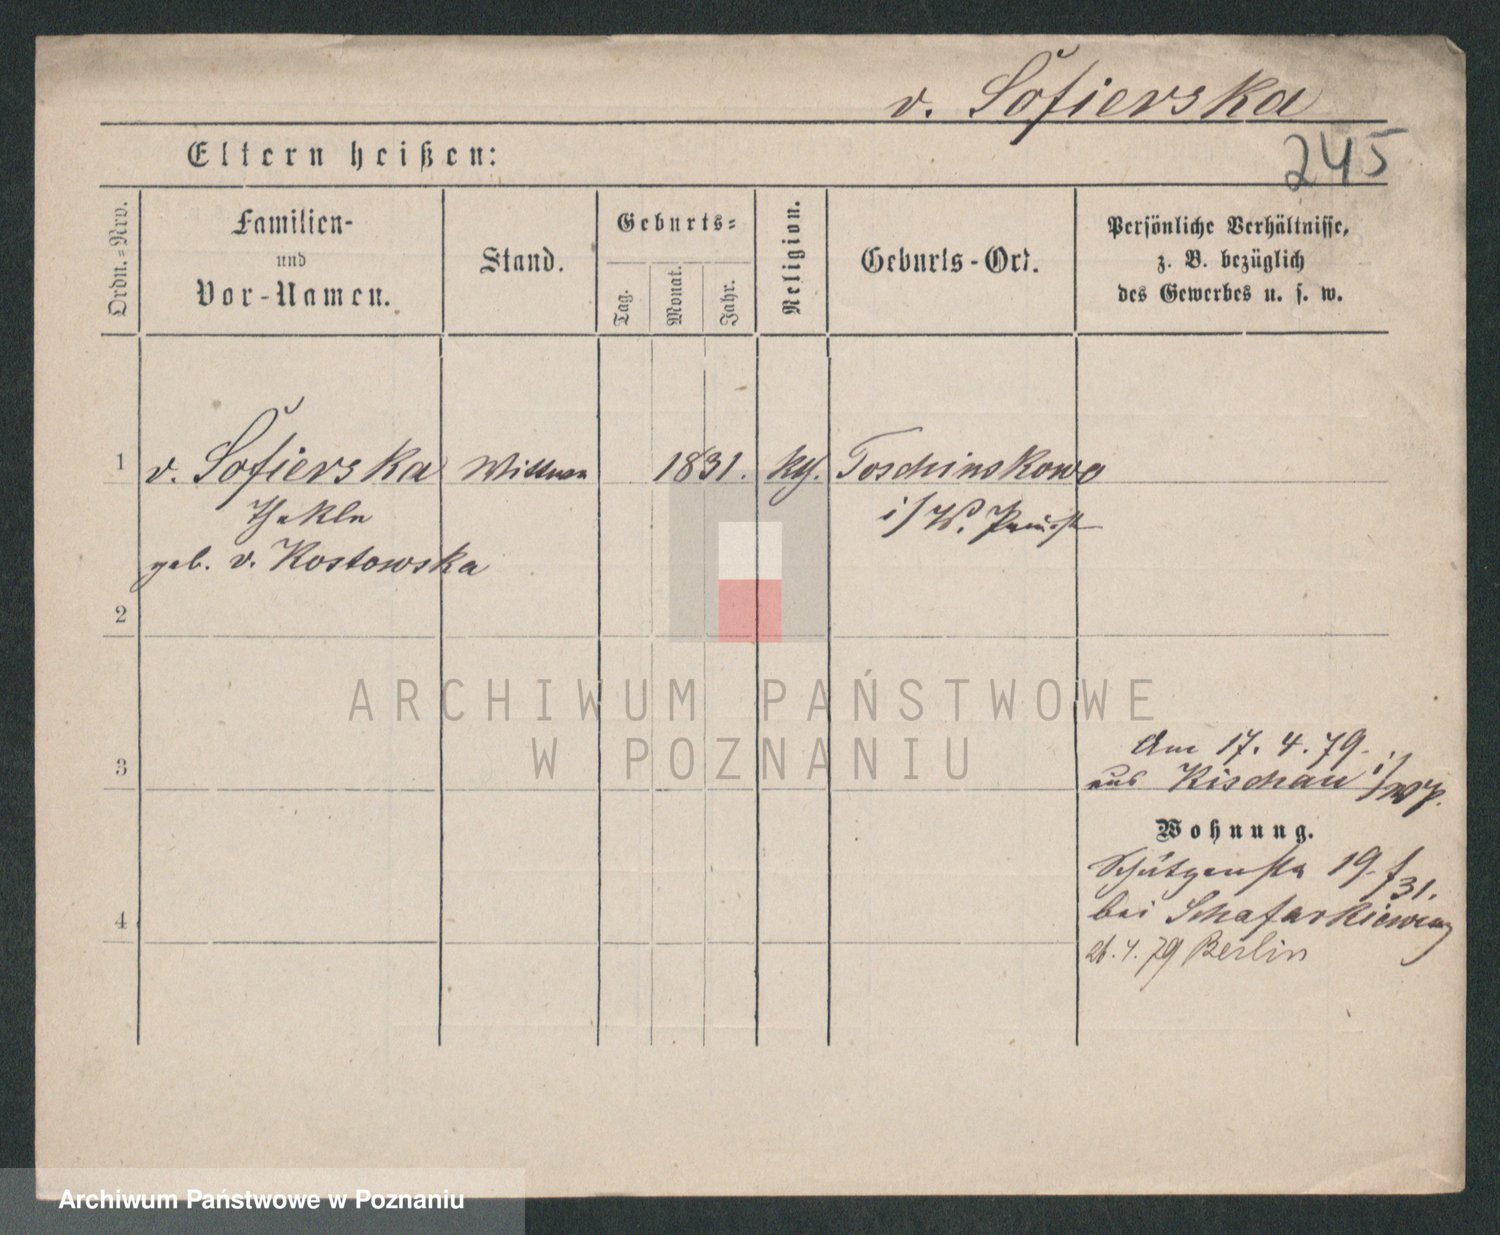 v. Sofierska
245
Eltern heißen:
Ordn.=Nro.
Familien-
und
Vor-Namen.
Stand.
Geburts=
Tag.
Monat.
Jahr.
Religion.
Geburts-Ort.
Persönliche Verhältnisse,
z. B. bezüglich
des Gewerbes u. s. w.
1 v. Sofierska Wittwe 1831. kth. Toschinskowo
Thekla i/W. Preuß
geb. v. Kostowska
2
ARCHIWUM PAŃSTWOWE
W POZNANIU
3
Am 17. 4. 79.
aus Kischau i/WP.
Wohnung.
Schützenstr 19. f 31.
4
bei Schafarkiewicz
26. 4. 79 Berlin
Archiwum Państwowe w Poznaniu